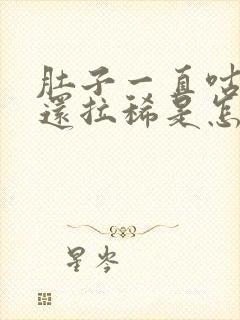 肚子一直咕
還拉稀是怎
星岑